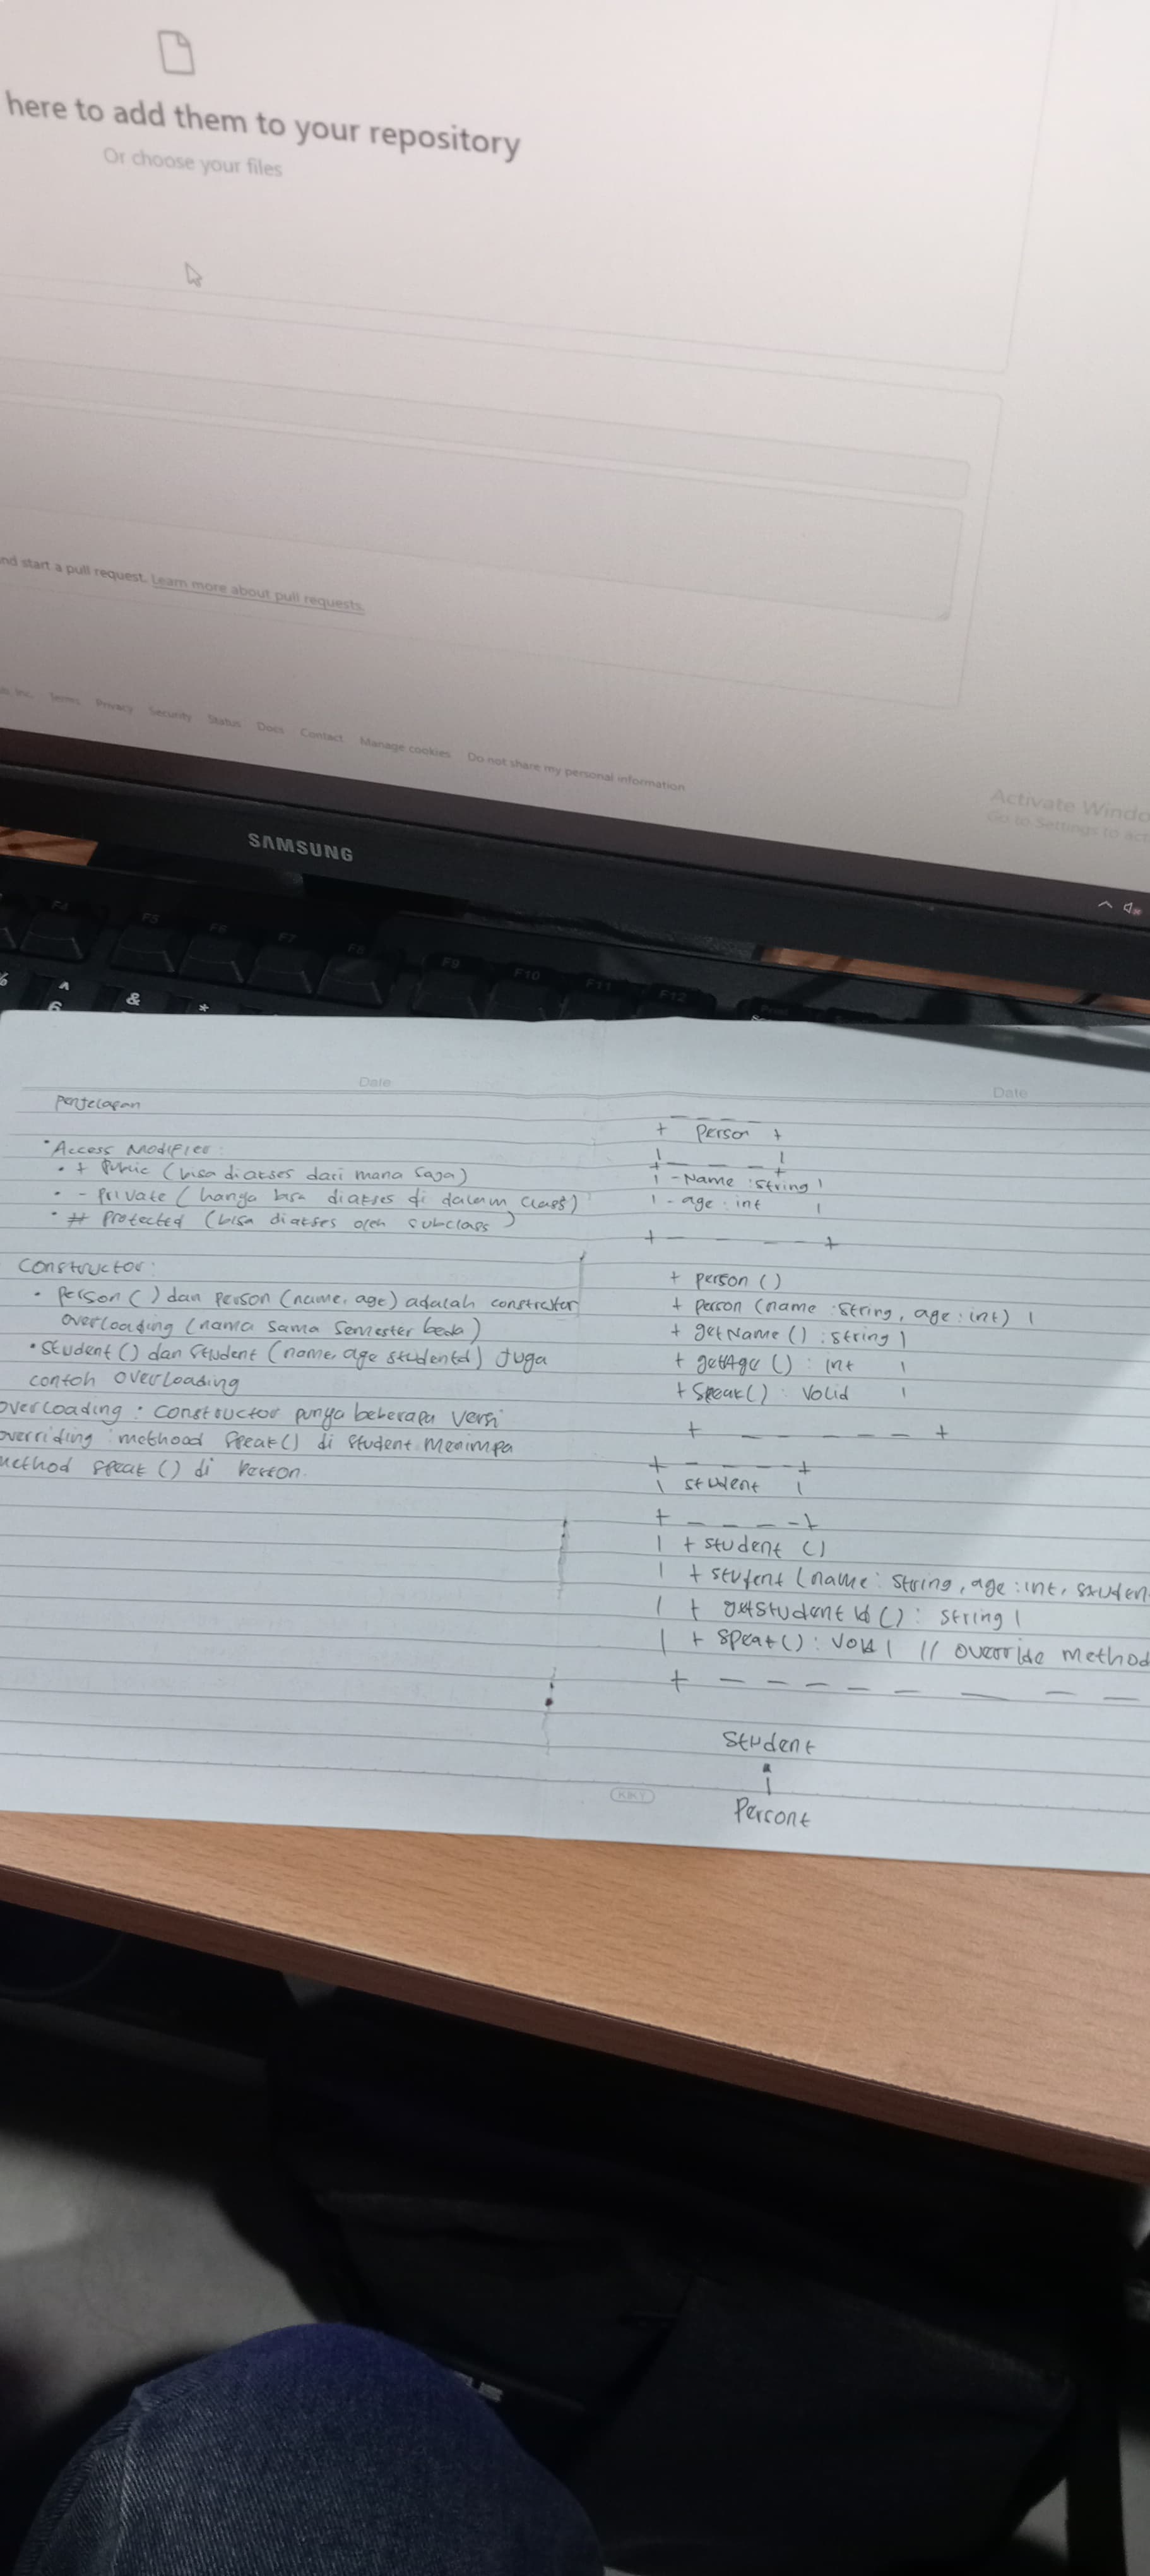 here to add them to your repository
Or choose your files
nd start a pull request. Learn more about pull requests.
Inc. Terms Privacy Security Status Docs Contact Manage cookies Do not share my personal information
Activate Windo
Go to Settings to act
SAMSUNG
F4 F5 F6 F7 F8 F9 F10 F11 F12
% ^ & *
6
Date
Penjelasan
• Access Modifier:
• + Public (bisa diakses dari mana saja)
• - Private (hanya bisa diakses di dalam class)
• # Protected (bisa diakses oleh subclass)
Constructor:
• Person () dan person (name, age) adalah constructor
overloading (nama sama semester beda)
• Student () dan Student (name, age studentd) Juga
contoh overloading
overloading : constructor punya beberapa versi
overriding : methood speak() di student menimpa
method speak () di Person.
Date
+ Person +
| - Name : string |
| - age : int |
+ - - - - +
+ person ()
+ person (name : string, age : int) |
+ getName () : string |
+ getAge () : int |
+ Speak() : Void |
+ - - - - - +
+ - - - - +
| student |
+ - - - - +
| + student ()
| + student (name : string, age : int, studen
| + getstudent Id () : string |
| + speak() : void | // override method
+ - - - - - - - -
student
Persont
KIKY